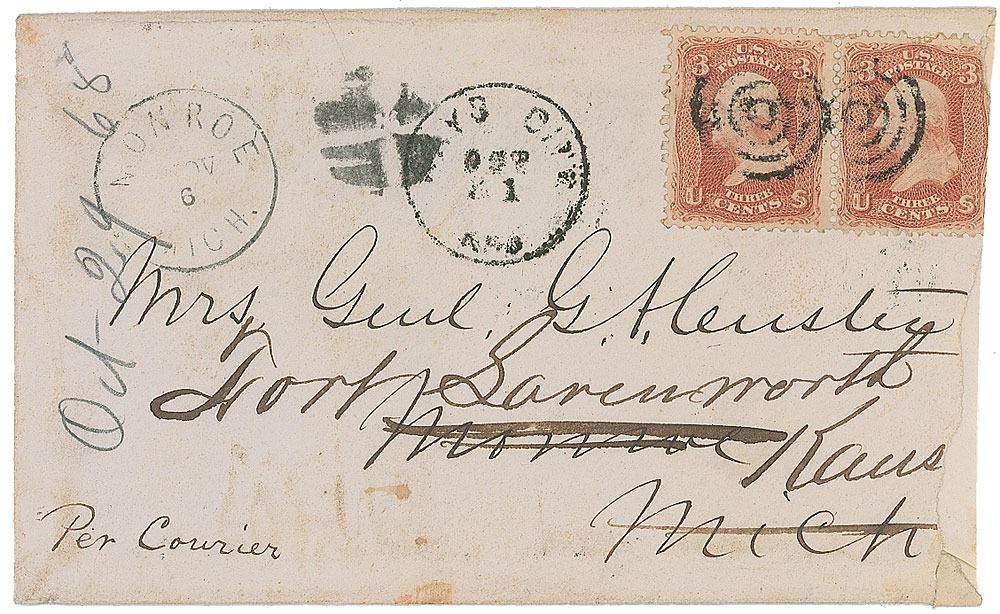 Oct-29 68
MONROE
NOV
6
MICH.
YS CITY
OCT
31
KAS
3 U.S. 3
POSTAGE
U THREE S
CENTS
3 U.S. 3
POSTAGE
U THREE S
CENTS
Mrs, Genl, G A Custer
Fort Lavenworth
Monroe Kans
Mich
Per Courier